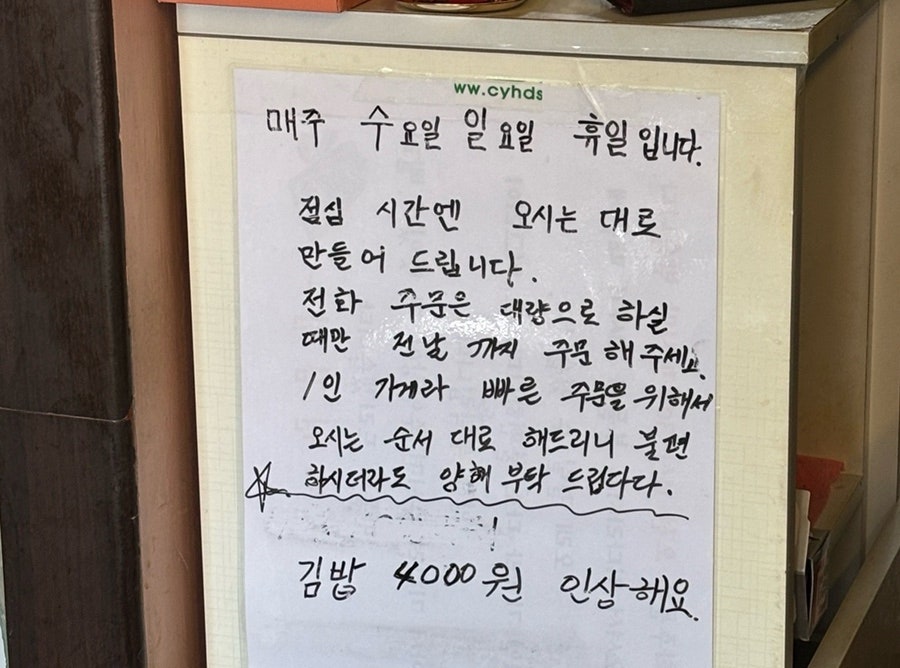 ww.cyhds
매주 수요일 일요일 휴일입니다.
점심 시간엔 오시는 대로
만들어 드립니다.
전화 주문은 대량으로 하실
때만 전날 까지 주문 해 주세요.
1인 가게라 빠른 주문을 위해서
오시는 순서 대로 해드리니 불편
하시더라도 양해 부탁 드립다다.
김밥 4000원 인상해요.